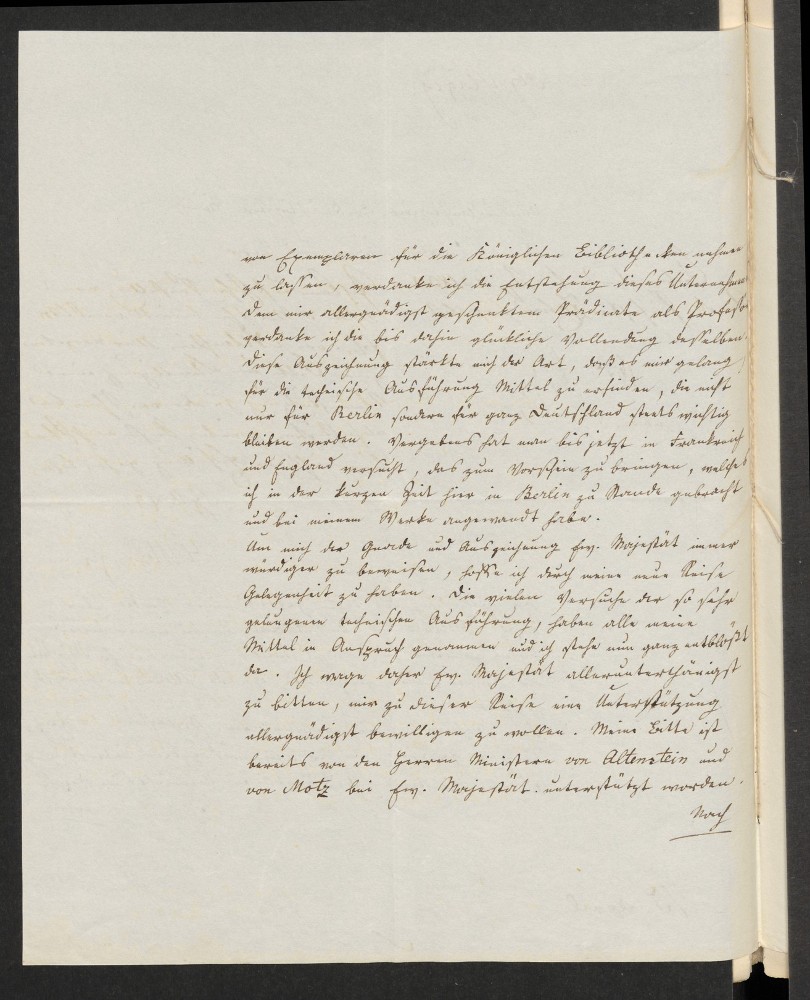 von Exemplaren für die Königlichen Bibliotheken nehmen
zu lassen, verdanke ich die Entstehung dieses Unternehmens
dem mir allergnädigst geschenktem Prädicate als Professor
verdanke ich die bis dahin glückliche Vollendung desselben.
Diese Auszeichnung stärkte mich der Art, daß es mir gelang,
für die technische Ausführung Mittel zu erfinden, die nicht
nur für Berlin sondern für ganz Deutschland stets wichtig
bleiben werden. Vergebens hat man bis jetzt in Frankreich
und England versucht, das zum Vorschein zu bringen, welches
ich in der kurzen Zeit hier in Berlin zu Stande gebracht
und bei meinem Werke angewandt habe.
Um mich der Gnade und Auszeichnung Ew. Majestät immer
würdiger zu beweisen, hoffe ich durch meine neue Reise
Gelegenheit zu haben. Die vielen Versuche der so sehr
gelungenen technischen Ausführung, haben alle meine
Mittel in Anspruch genommen und ich stehe nun ganz entblößt
da. Ich wage daher Ew. Majestät allerunterthänigst
zu bitten, mir zu dieser Reise eine Unterstützung
allergnädigst bewilligen zu wollen. Meine Bitte ist
bereits von den Herren Ministern von Altenstein und
von Motz bei Ew. Majestät unterstützt worden.
Nach